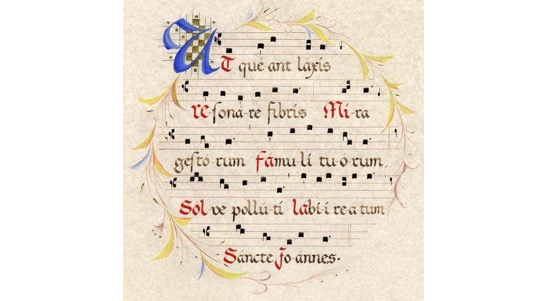 UT que·ant láxis
re·ſoná·re fibris Mi·ra
geſtó·rum fá·mu·li tu·o·rum
Sol·ve pollú·ti la·bi·i re·a·tum
Sáncte Jo·ánnes·